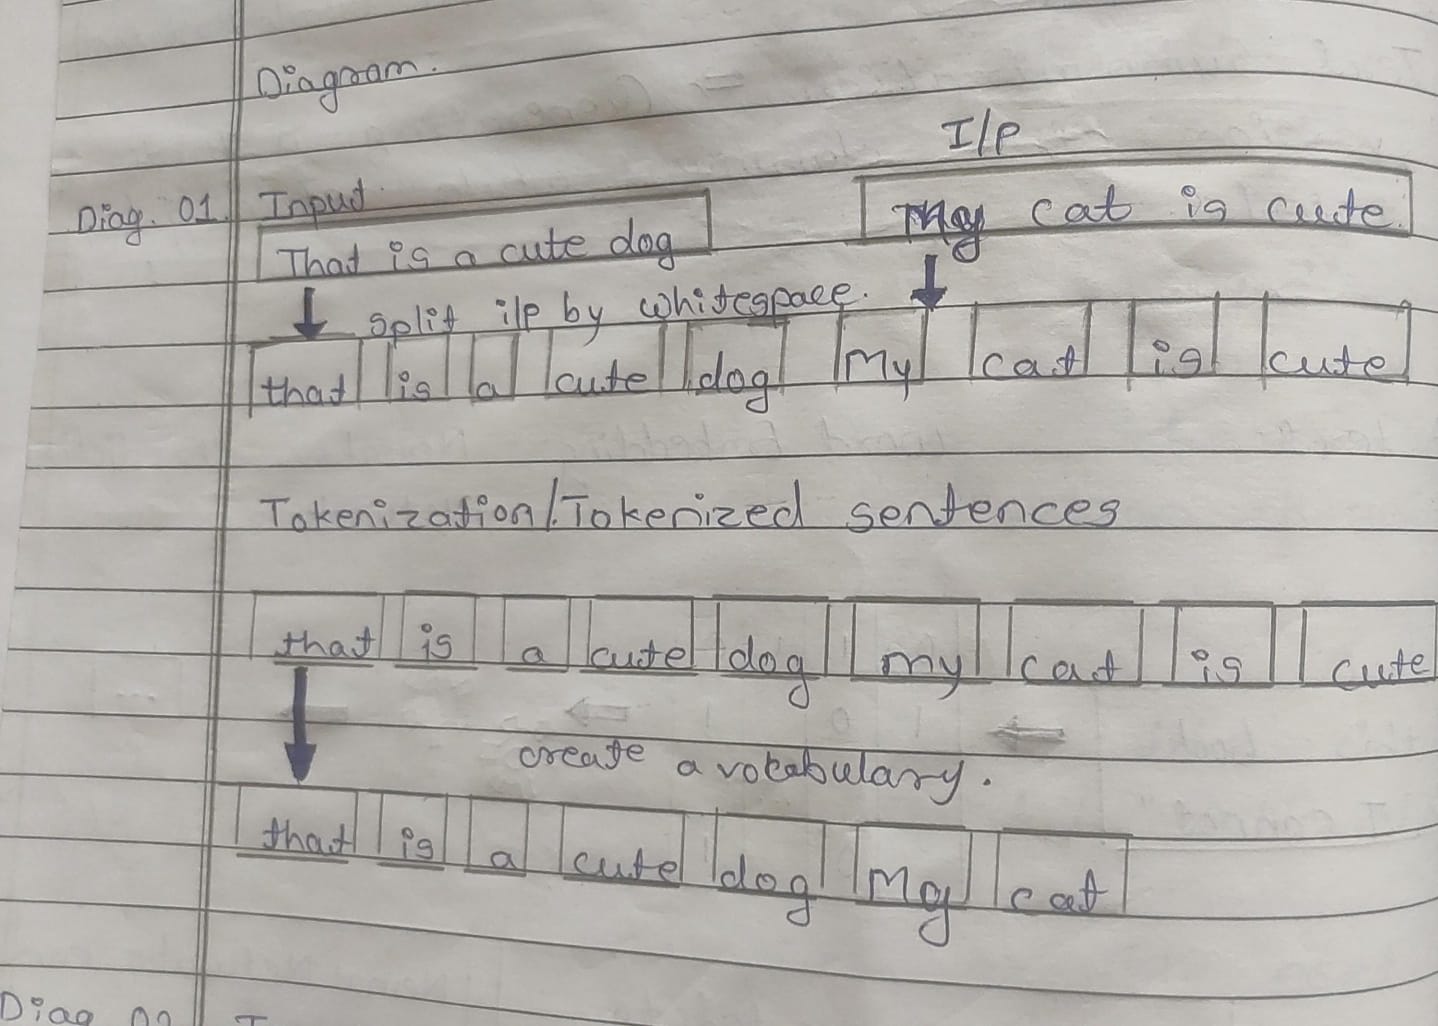 Diagram.
I/P
Diag. 01. Input
That is a cute dog
My cat is cute.
split i/p by whitespace.
that is a cute dog My cat is cute
Tokenization/Tokenized sentences
that is a cute dog my cat is cute
create a vocabulary.
that is a cute dog My cat
Diag 02